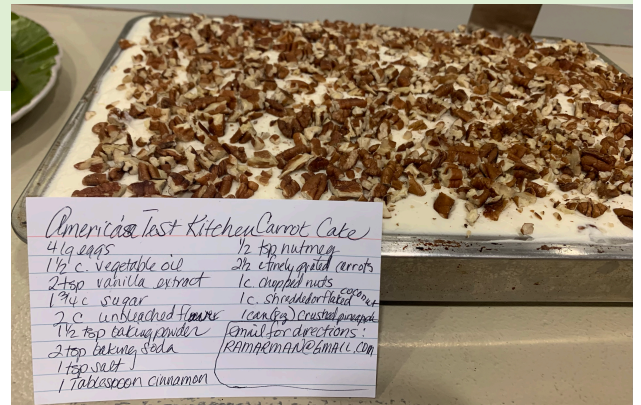 America's Test Kitchen Carrot Cake
4 lg eggs
1 1/2 c. vegetable oil
2 tsp vanilla extract
1 3/4 c sugar
2 c unbleached flower
1 1/2 tsp baking powder
2 tsp baking soda
1 tsp salt
1 Tablespoon cinnamon
1/2 tsp nutmeg
2 1/2 c finely grated carrots
1 c. chopped nuts
1 c. shredded or flaked coconut
1 can (8oz) crushed pineapple
Email for directions:
RAMARMAN@GMAIL.COM